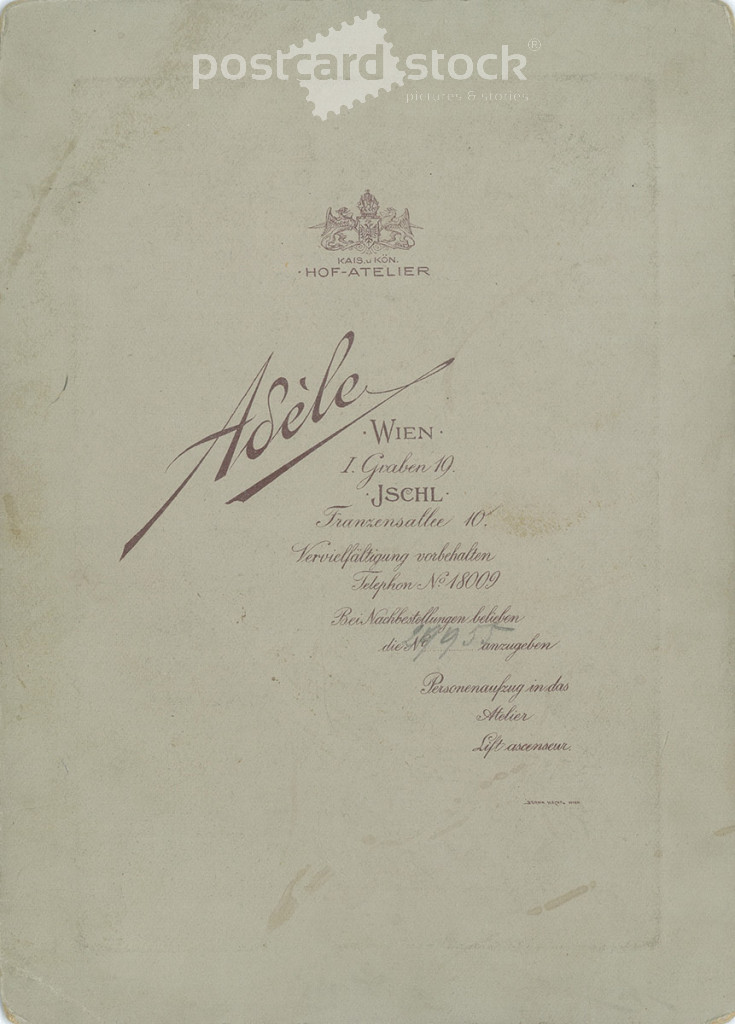 postcard stock®
pictures & stories
KAIS. u. KÖN.
·HOF-ATELIER
Adèle
·WIEN·
I. Graben 19.
·JSCHL·
Franzensallee 10.
Vervielfältigung vorbehalten
Telephon No 18009
Bei Nachbestellungen belieben
die No anzugeben
Personenaufzug in das
Atelier
Lift ascenseur.